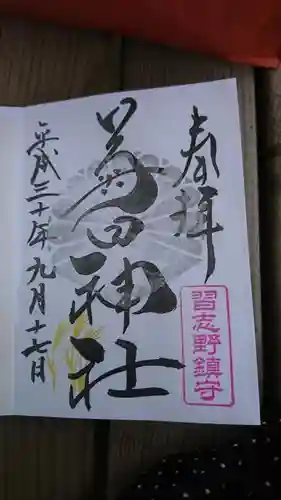 奉拝
習志野鎮守
菊田神社
平成三十年九月十七日